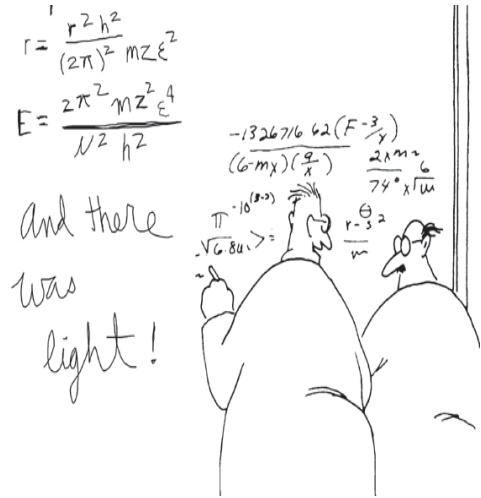 r = r²h² / (2π)² mzε²
E = 2π² mz² ε⁴ / N² h²
and there
was
light!
-1326716 62 (F - 3/y)
(6-mx)(9/x)
74° x √
π -10(3-2)
-√6.84
r-3 2
m